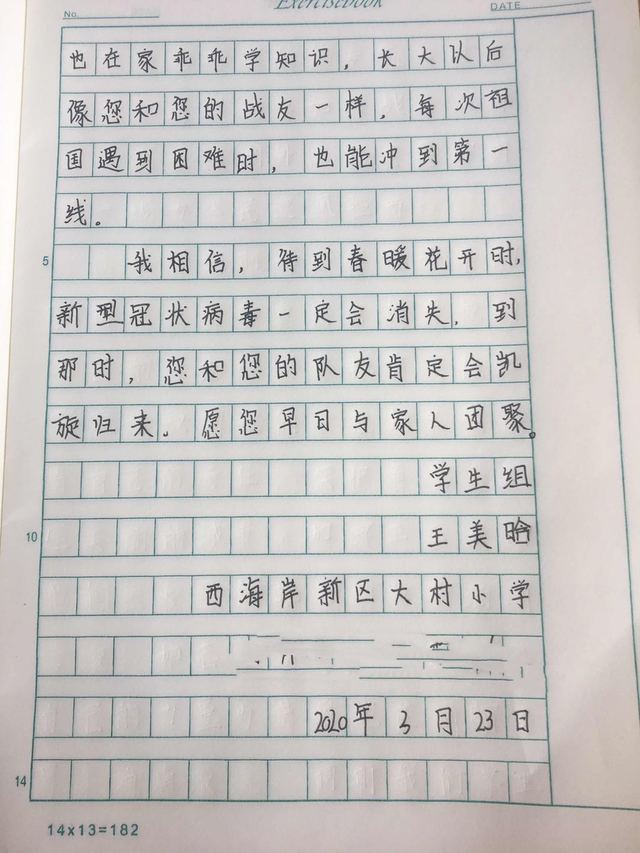 Exercisebook
No.
DATE
也在家乖乖学知识，长大以后
像您和您的战友一样，每次祖
国遇到困难时，也能冲到第一
线。
5
我相信，待到春暖花开时，
新型冠状病毒一定会消失，到
那时，您和您的队友肯定会凯
旋归来。愿您早日与家人团聚。
学生组
10
王美晗
西海岸新区大村小学
2020年3月23日
14
14x13=182